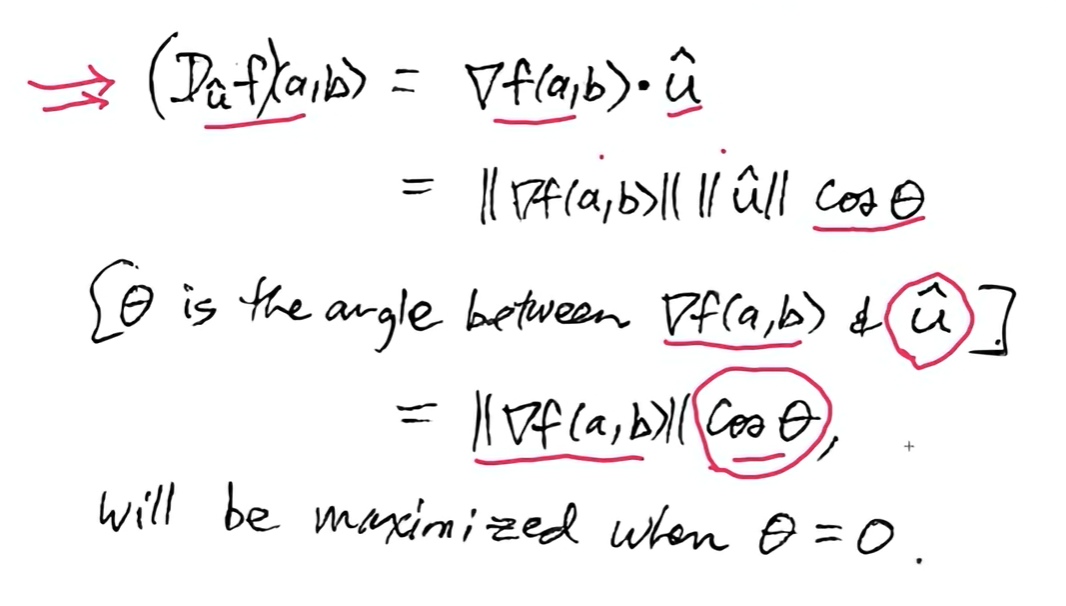 (D_û f)(a,b) = ∇f(a,b)·û
= ||∇f(a,b)|| ||û|| cos θ
[θ is the angle between ∇f(a,b) & û].
= ||∇f(a,b)|| cos θ,
will be maximized when θ = 0.